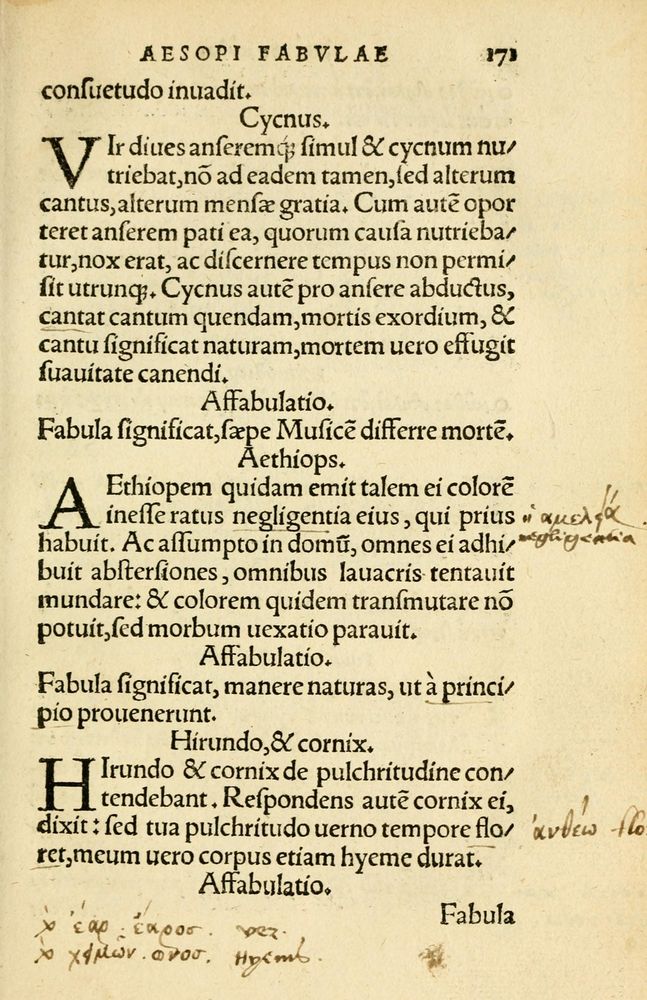 AESOPI FABVLAE 171
conſuetudo inuadit.
Cycnus.
VIr diues anſeremq; ſimul & cycnum nu/
triebat,nõ ad eadem tamen,ſed alterum
cantus,alterum menſæ gratia. Cum autẽ opor
teret anſerem pati ea, quorum cauſa nutrieba/
tur,nox erat, ac diſcernere tempus non permi/
ſit utrunq;. Cycnus autẽ pro anſere abductus,
cantat cantum quendam,mortis exordium, &
cantu ſignificat naturam,mortem uero effugit
ſuauitate canendi.
Affabulatio.
Fabula ſignificat,ſæpe Muſicẽ differre mortẽ.
Aethiops.
AEthiopem quidam emit talem ei colorẽ
ineſſe ratus negligentia eius, qui prius
habuit. Ac aſſumpto in domũ, omnes ei adhi/
buit abſterſiones, omnibus lauacris tentauit
mundare: & colorem quidem tranſmutare nõ
potuit,ſed morbum uexatio parauit.
Affabulatio.
Fabula ſignificat, manere naturas, ut à princi/
pio prouenerunt.
Hirundo,& cornix.
HIrundo & cornix de pulchritudine con/
tendebant. Reſpondens autẽ cornix ei,
dixit: ſed tua pulchritudo uerno tempore flo/
ret,meum uero corpus etiam hyeme durat.
Affabulatio.
Fabula
negligentia
ἀνθέω flo
ἔαρ . ἔαρος . ver.
χειμών . ωνος . Hyems